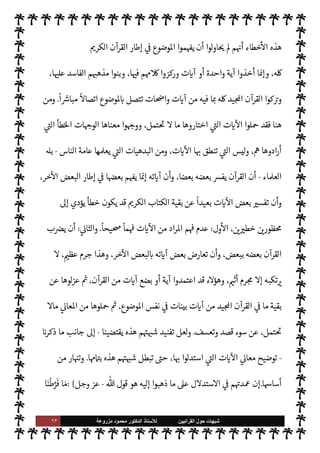 هذه الأخطاء أنهم لم يحاولوا أن يفهموا الموضوع في إطار القرآن الكريم
كله. وإنما أخذوا آية واحدة أو آيات وركزوا كلامهم فيها، وبنوا مذهبهم الفاسد عليها،
وتركوا القرآن المجيد كله بما فيه من آيات واضحات تتصل بالموضوع اتصالاً مباشراً. ومن
هنا فقد حملوا الآيات التي اختاروها ما لا تحتمل، ووجهوا معناها الوجهات الخطأ التي
أرادوها هم، وليس التي تنطق بها الآيات، ومن البدهيات التي يعلمها عامة الناس - بله
العلماء - أن القرآن يفسر بعضه بعضا، وأن آياته إنما يفهم بعضها في إطار البعض الآخر،
وأن تفسير بعض الآيات بعيداً عن بقية الكتاب الكريم قد يكون خطأ يؤدي إلى
محظورين خطيرين، الأول: عدم فهم المراد من الآيات فهماً صحيحاً. والثاني: أن يضرب
القرآن بعضه ببعض، وأن تعارض بعض آياته بالبعض الآخر. وهذا جرم عظيم، لا
يرتكبه إلا مجرم أثيم، وهؤلاء قد اعتمدوا آية أو بضع آيات من القرآن، ثم عزلوها عن
بقية ما في القرآن المجيد من آيات بينات في نفس الموضوع. ثم حملوها من المعاني مالا
تحتمل، عن سوء قصد وتعسف. ولعل تفنيد شبهتهم هذه يقتضينا - إلى جانب ما ذكرنا
- توضيح معاني الآيات التي استدلوا بها، حتى تبطل شبهتهم هذه بتمامها. وتنهار من
أساسها.إن عمدتهم في الاستدلال على ما ذهبوا إليه هو قول الله - عز وجل) :مَا فَرَّطْنَا
شبهات حول القرآنيين للأستاذ الدكتور محمود مزروعة ٦٣